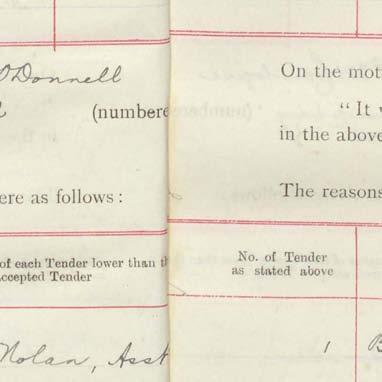 O'Donnell
(numbered
ere as follows :
of each Tender lower than th
accepted Tender
Nolan, Asst
On the mot
" It w
in the above
The reasons
No. of Tender
as stated above
1
B